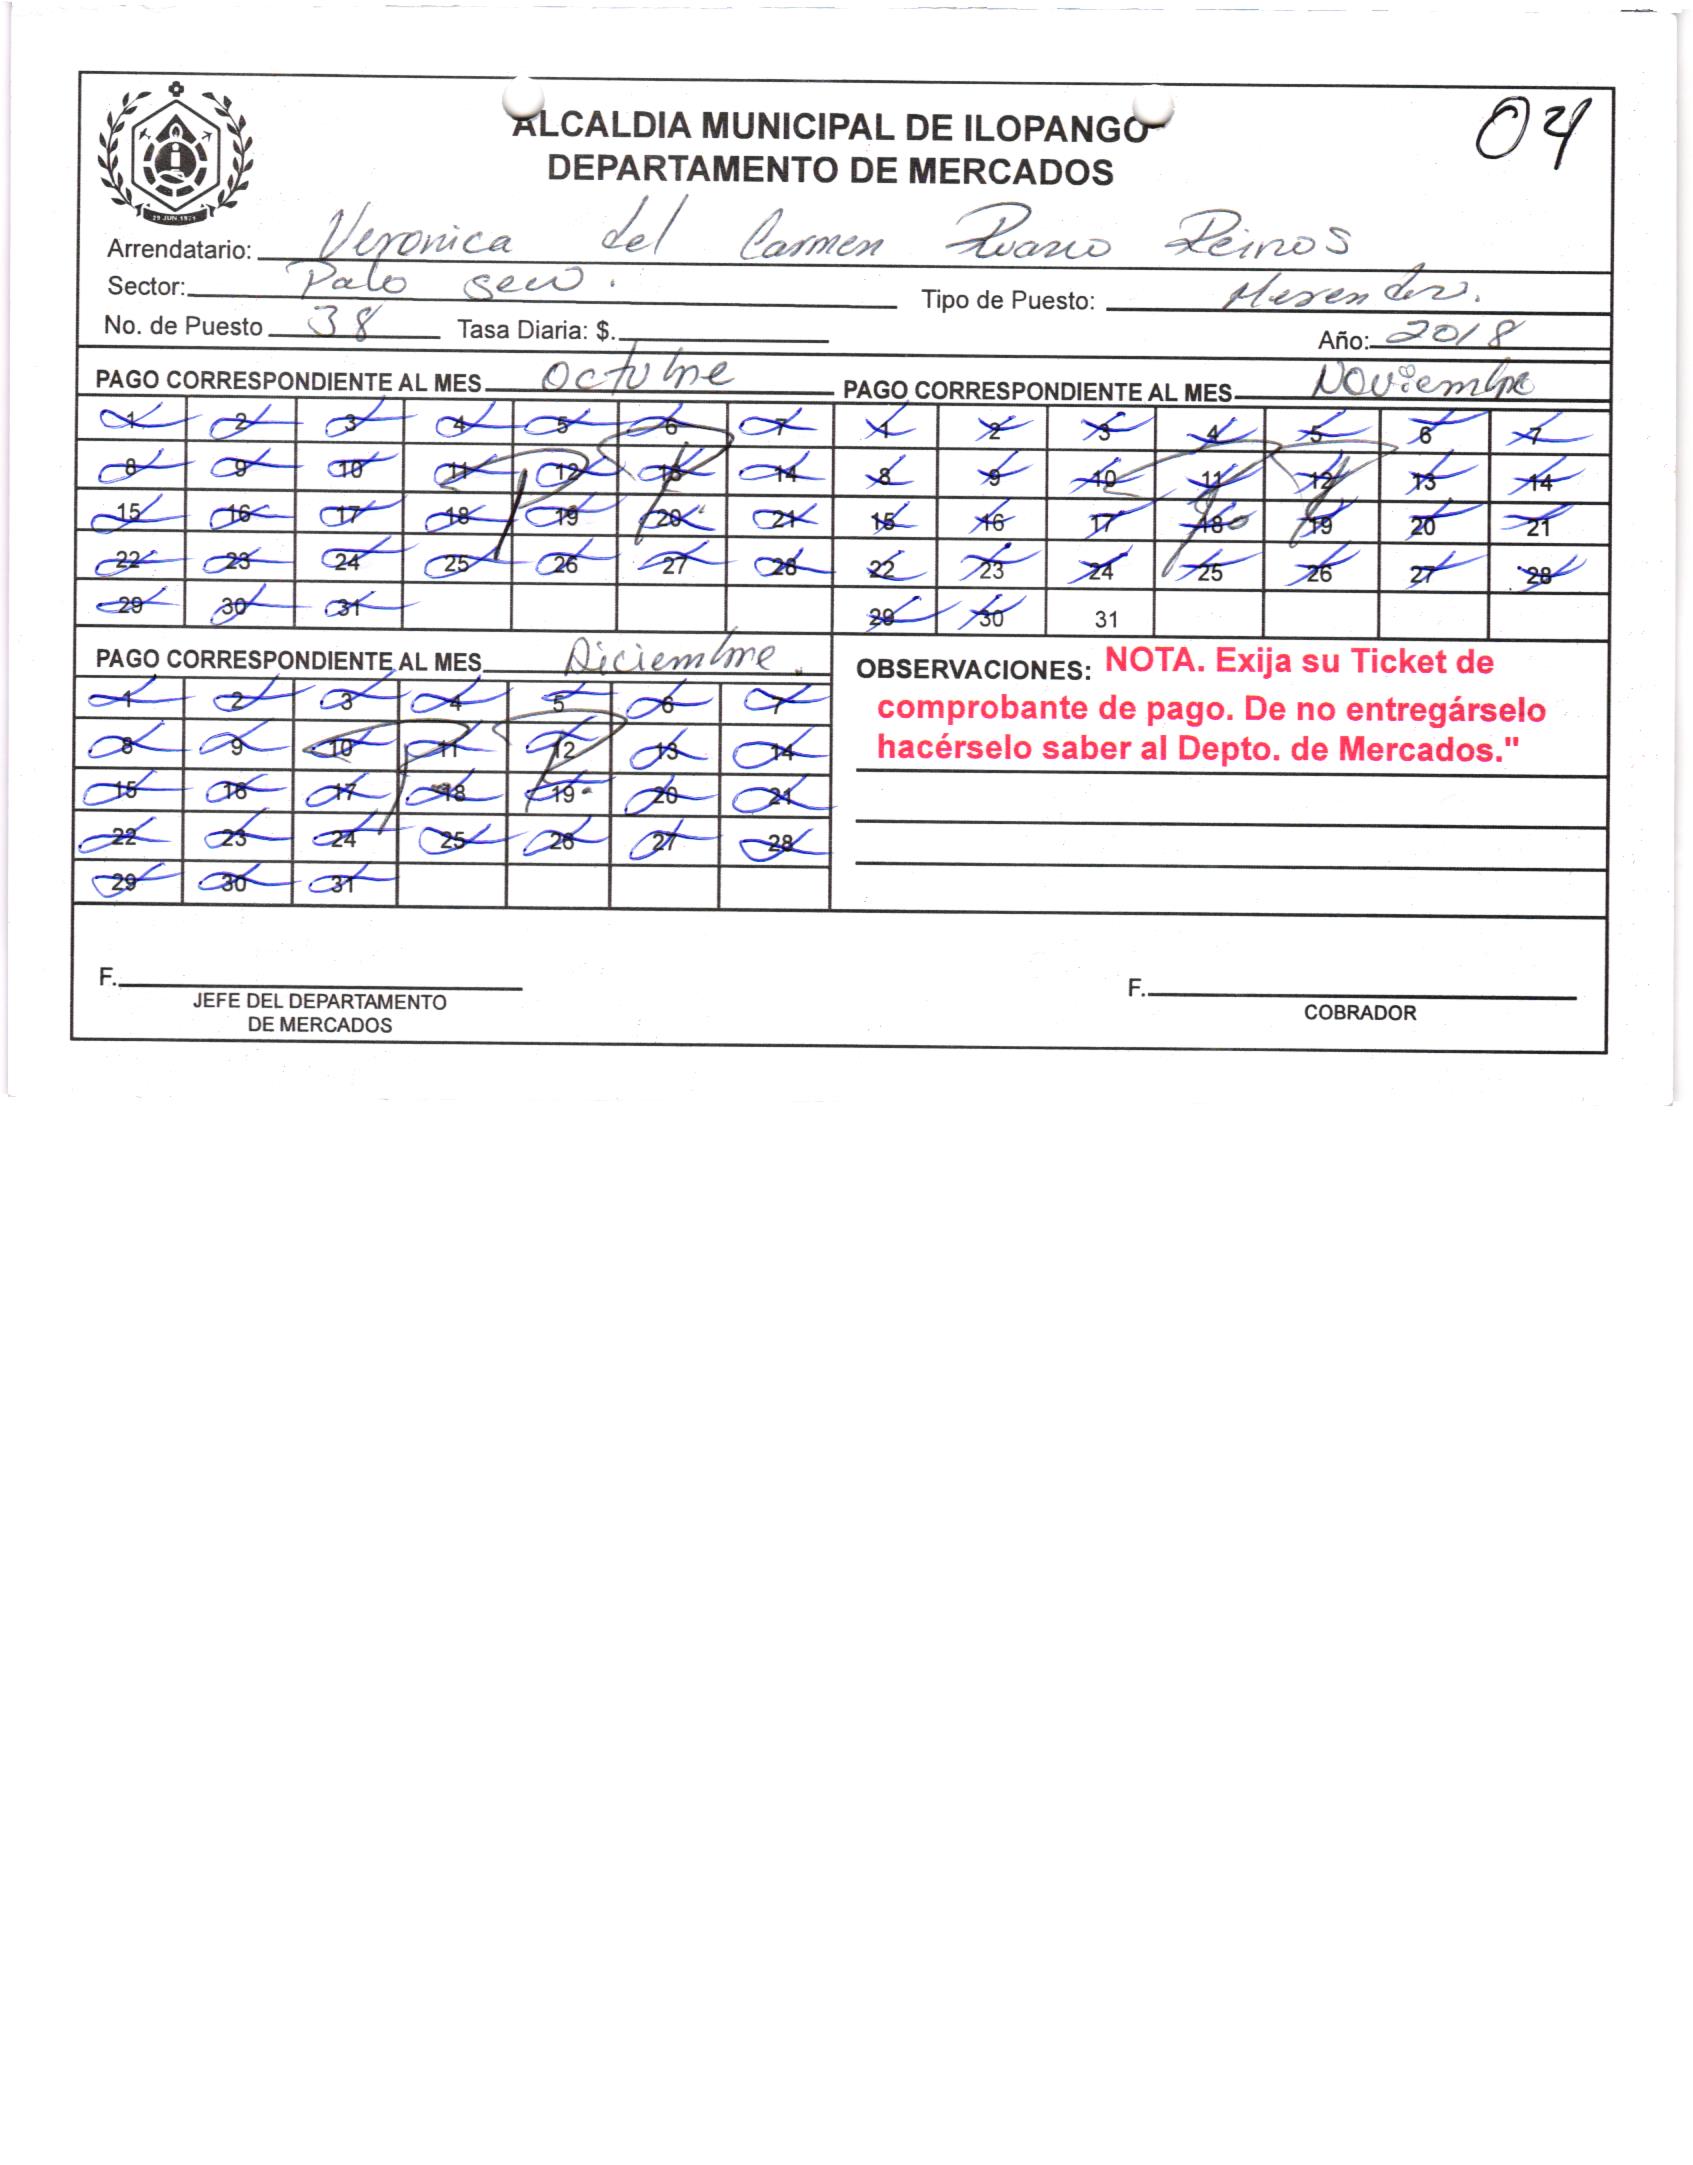 04
ALCALDIA MUNICIPAL DE ILOPANGO
DEPARTAMENTO DE MERCADOS
29 JUN. 1971
Arrendatario: Veronica del Carmen Ruano Reinos
Sector: Palo seco.
Tipo de Puesto:
No. de Puesto 38 Tasa Diaria: $.
Año: 2018
PAGO CORRESPONDIENTE AL MES Octubre
1 2 3 4 5 6 7
8 9 10 11 12 13 14
15 16 17 18 19 20 21
22 23 24 25 26 27 28
29 30 31
PAGO CORRESPONDIENTE AL MES Noviembre
1 2 3 4 5 6 7
8 9 10 11 12 13 14
15 16 17 18 19 20 21
22 23 24 25 26 27 28
29 30 31
PAGO CORRESPONDIENTE AL MES Diciembre
1 2 3 4 5 6 7
8 9 10 11 12 13 14
15 16 17 18 19 20 21
22 23 24 25 26 27 28
29 30 31
OBSERVACIONES: NOTA. Exija su Ticket de
comprobante de pago. De no entregárselo
hacérselo saber al Depto. de Mercados."
F.
JEFE DEL DEPARTAMENTO
DE MERCADOS
F.
COBRADOR